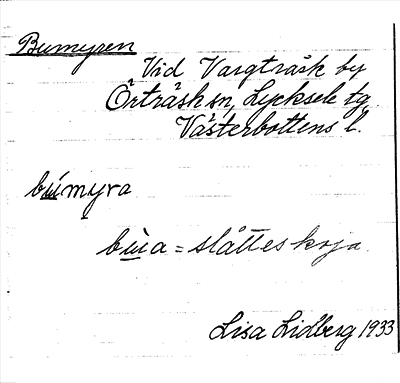 Bumyren
Vid Vargträsk by
Örträsk sn, Lycksele tg,
Västerbottens l.
búmyra
bùa = slåtteskoja.
Lisa Lidberg 1933